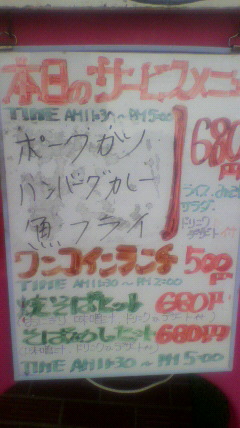 本日のサービスメニュー
TIME AM11:30〜PM5:00
ポークカツ
ハンバーグカレー
魚フライ
680円
ライス、みそ汁
サラダ、
ドリンク
デザート付
ワンコインランチ 500円
TIME AM11:30〜PM2:00
焼そばセット 680円
味噌汁 ドリンク デザート付
そばめしセット 680円
味噌汁、ドリンク デザート付
TIME AM11:30〜PM5:00